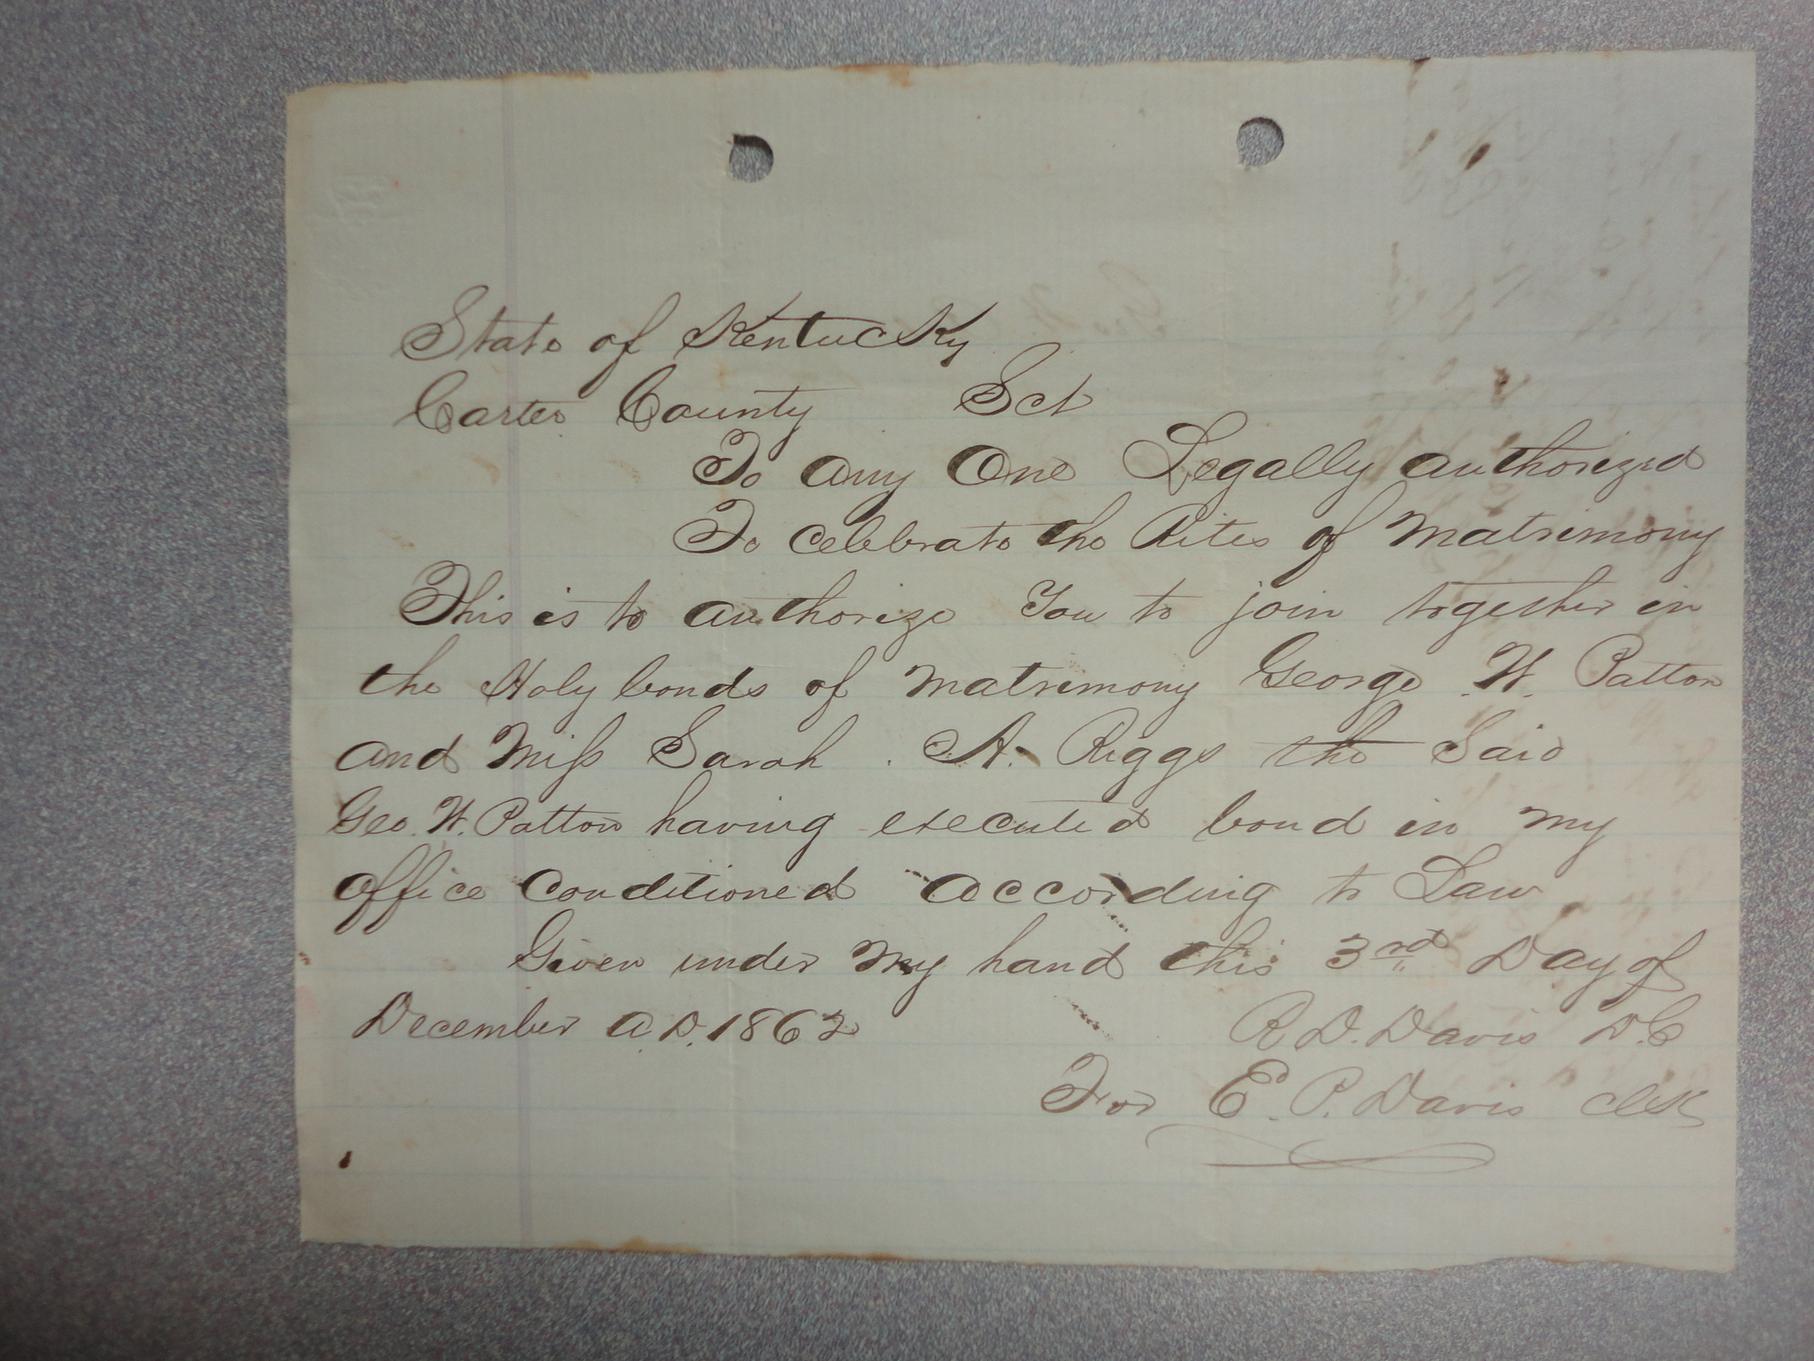 State of Kentucky
Carter County Sct
To any One Legally authorized
To celebrate the Rites of Matrimony
This is to authorize You to join together in
the Holy bonds of Matrimony George W. Patton
and Miss Sarah . A. Riggs the Said
Geo. W. Patton having executed bond in my
office Conditioned according to Law
Given under my hand this 3rd Day of
December A.D. 1862
R. D. Davis D.C
For E. P. Davis Clk